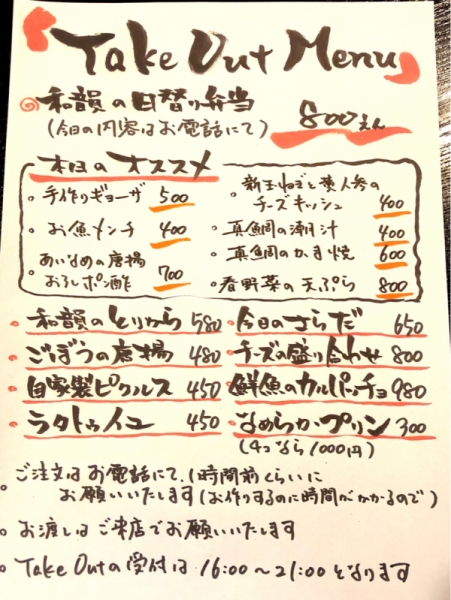 Take Out Menu
和韻の日替り弁当
(今日の内容はお電話にて)
800えん
本日のオススメ
・手作りギョーザ 500
・お魚メンチ 400
・あいなめの唐揚
おろしポン酢 700
・新玉ねぎと菜人参の
チーズキッシュ 400
・真鯛の潮汁 400
・真鯛のかま焼 600
・春野菜の天ぷら 800
和韻のとりから 580
ごぼうの唐揚 480
自家製ピクルス 450
ラタトゥイユ 450
今日のさらだ 650
チーズの盛り合わせ 800
鮮魚のカルパッチョ 980
なめらかプリン 300
(4つなら1000円)
。ご注文はお電話にて、1時間前くらいに
お願いいたします(お作りするのに時間がかかるので)
。お渡しはご来店でお願いいたします
。Take Outの受付は 16:00〜21:00となります